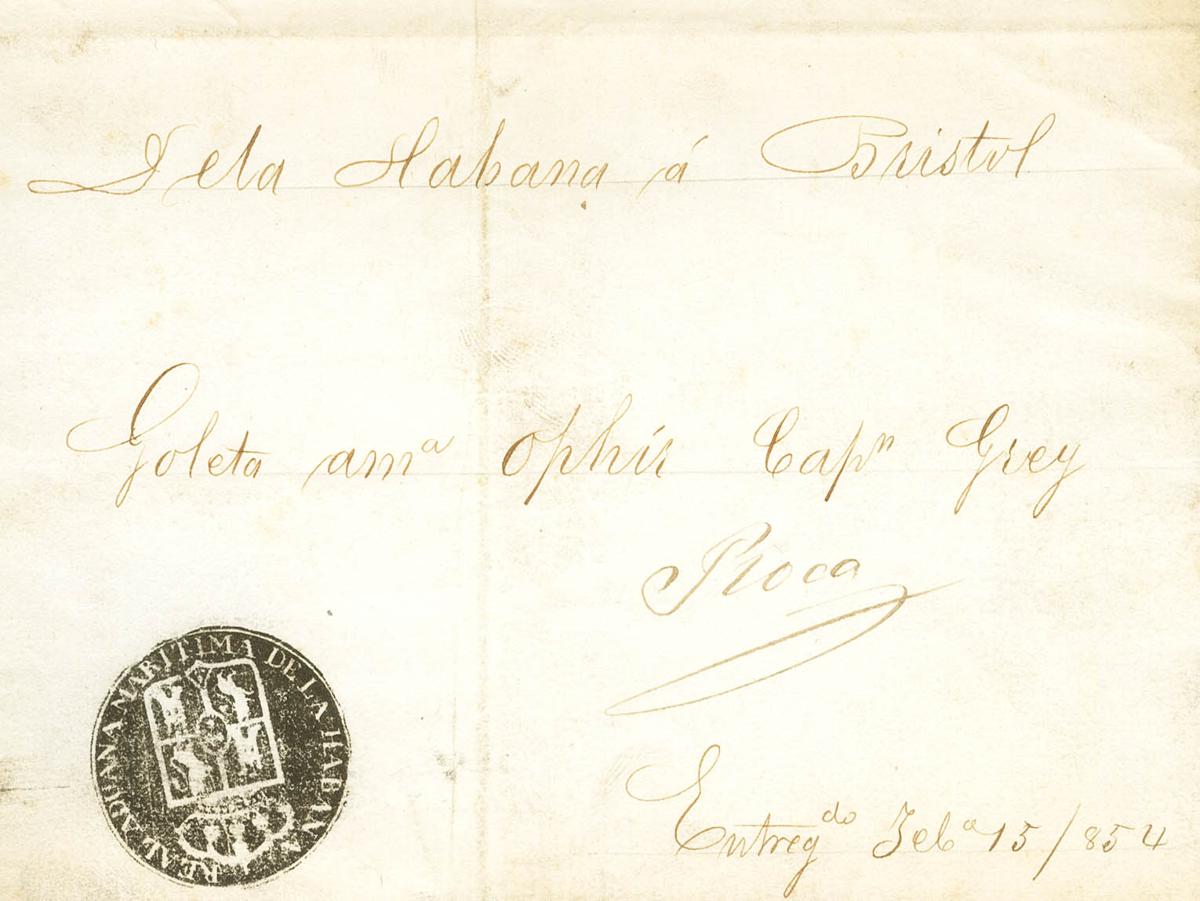 De la Habana á Bristol
Goleta amª Ophir Capⁿ Grey
Roca
Entregᵈᵒ Febº 15/854
REAL ADUANA MARITIMA DE LA HABANA